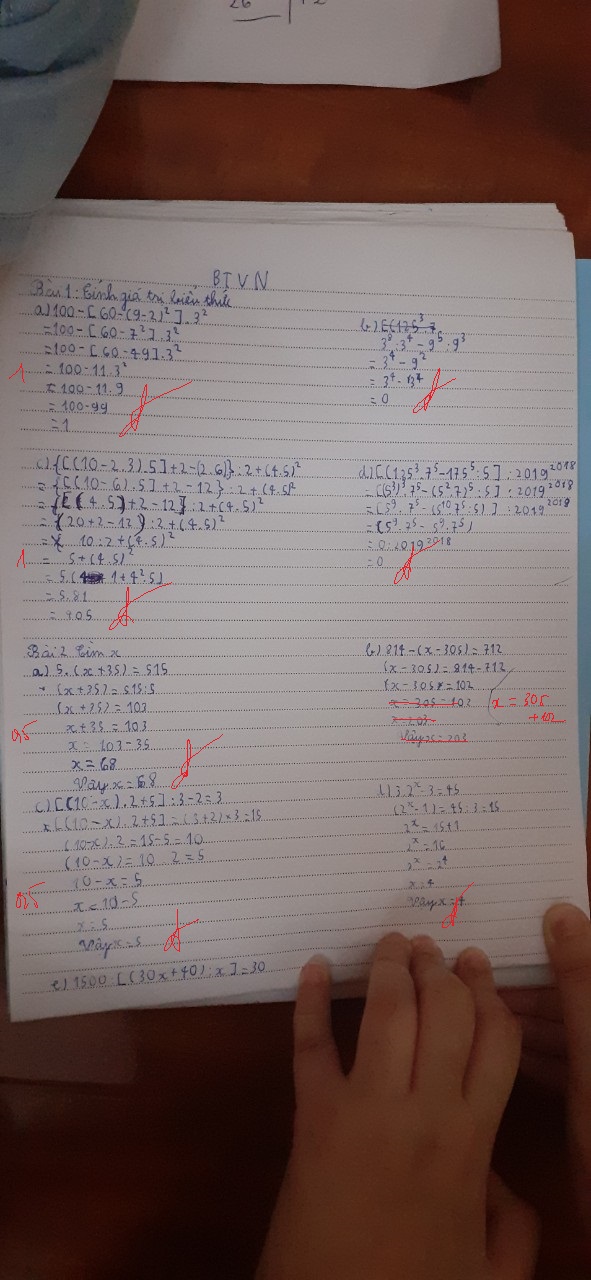 26 12
BTVN
Bài 1: Tính giá trị biểu thức
a) 100-[60-(9-2)²].3²
=100-[60-7²].3²
=100-[60-49].3²
= 100-11.3²
1
= 100-11.9
= 100-99
=1
b) [(125³.7
3⁸:3⁴-9⁵:9³
= 3⁴-9²
= 3⁴-3⁴
=0
c) {[(10-2.3).5]+2-(2.6)}:2+(4.5)²
= {[(10-6).5]+2-12}:2+(4.5)²
= {[(4.5)+2-12]:2+(4.5)²
= {20+2-12}:2+(4.5)²
= 10:2+(4.5)²
1
= 5+(4.5)²
= 5.(1+4².5)
= 5.81
= 405
d) [(125³.7⁵-175⁵:5]:2019²⁰¹⁸
= [(5³)³.7⁵-(5².7)⁵:5]:2019²⁰¹⁸
= [5⁹.7⁵-(5¹⁰.7⁵:5)]:2019²⁰¹⁸
= (5⁹.7⁵-5⁹.7⁵)
= 0:2019²⁰¹⁸
=0
Bài 2 Tìm x
a) 5.(x+35)=515
(x+35)=515:5
(x+35)=103
x+35=103
0,5
x=103-35
x=68
Vậy x=68
b) 814-(x-305)=712
(x-305)=814-712
(x-305)=102
x=305-102
x=203
Vậy x=203
x=305
+102
c) [(10-x).2+5]:3-2=3
[(10-x).2+5]=(3+2)×3=15
(10-x).2=15-5=10
(10-x)=10 2=5
10-x=5
0,5
x=10-5
x=5
Vậy x=5
d) 3.2ˣ-3=45
(2ˣ-1)=45:3=15
2ˣ=15+1
2ˣ=16
2ˣ=2⁴
x=4
Vậy x=4
e) 1500:[(30x+40):x]=30